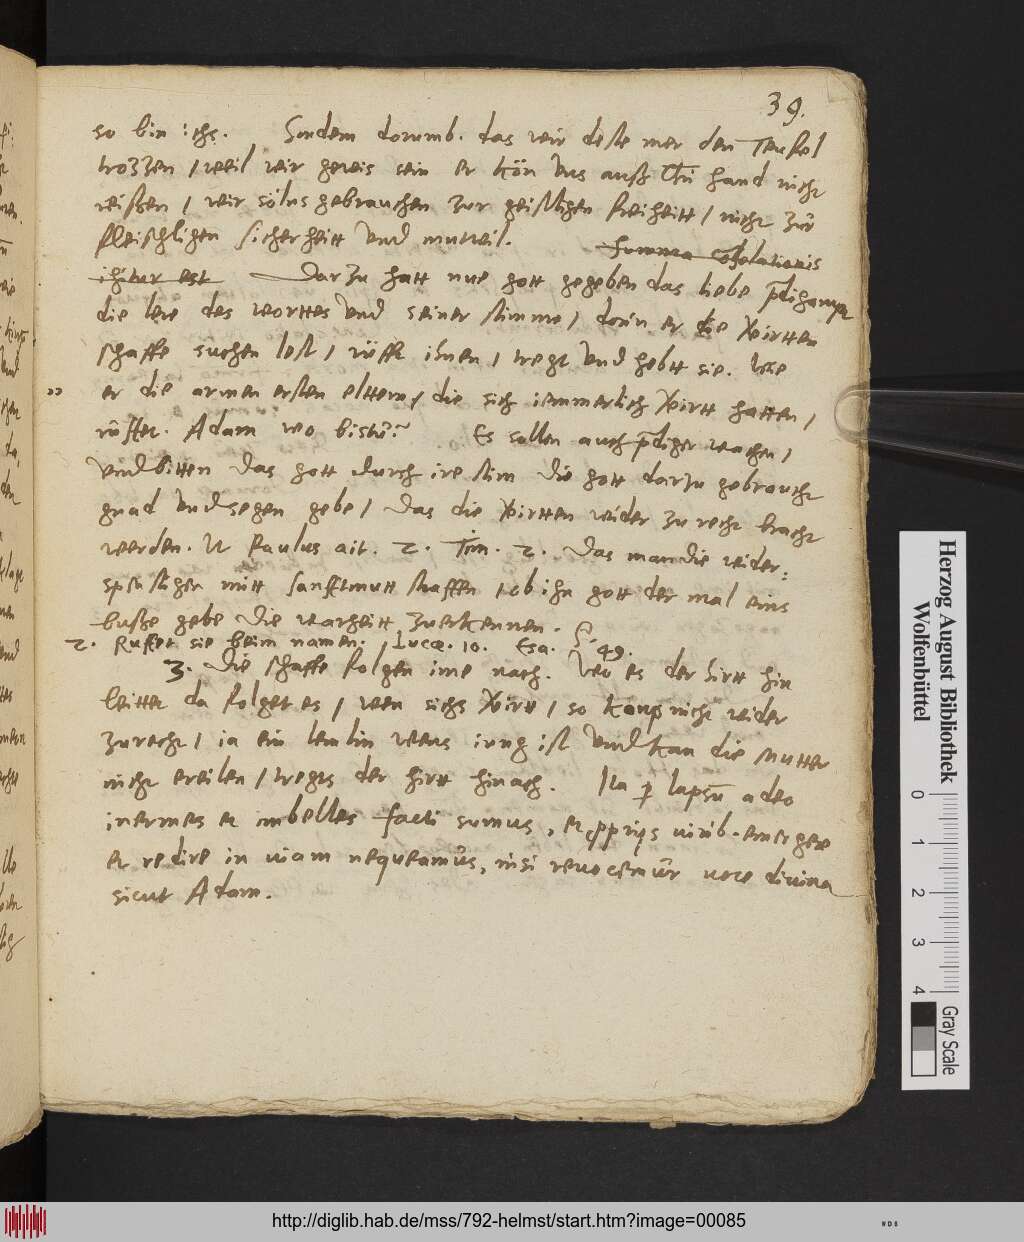 39.
so bin ichs. Sondern dorumb. das wir deste mer den Teufel
trozzen / weil wir gewis sein er kön uns auß hand nicht
reißen / wir sölns gebrauchen zur geistligen freiheitt / nicht zur
fleischligen sicherheitt und mutwil. Summa cōsolationis
igitur est Darzu hatt nue gott gegeben das liebe p̄digampt
die lere des worttes und seiner stimme / dorin er die virtten
schaffe suchen lest / rüfft ihnen / tregt und hebtt sie. Wie
er die armen ersten elttern / die sich iemmerlich virtt hatten /
rüffet. Adam wo bistu? Es sollen auch p̄diger wachen /
und bitten das gott durch ire stim die gott darzu gebraucht
gnad und segen gebe / Das die virtten wider zu recht bracht
werden. Ut Paulus ait. 2. Tim. 2. Das man die wider:
spenstigen mitt sanfftmutt straffen / ob ihn gott der mal eins
buße gebe die warheitt zuerkennen.
2. Ruffet sie beim namen. Lucæ. 10. Esa. 49.
3. Die schaffe folgen ime nach. Wo es der hirtt hin
leittet da folget es / wen sichs virtt / so kans nicht wider
zurecht / ia ein lemlin wens iung ist und kan die mutter
nicht ereilen / tregts der hirtt hinach. Ita p lapsū adeo
inermes et imbelles facti sumus, et pprijs virib. emergere
et redire in viam nequeamus, nisi revocemur voce divina
sicut Adam.
Herzog August Bibliothek
Wolfenbüttel
0 1 2 3 4
Gray Scale
http://diglib.hab.de/mss/792-helmst/start.htm?image=00085